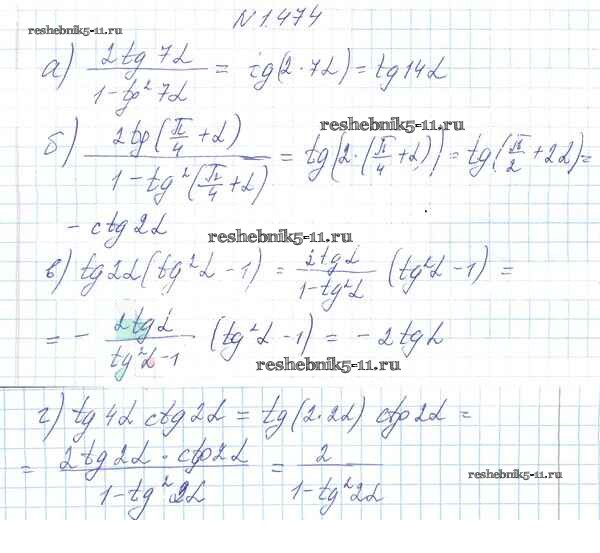 №1.474
reshebnik5-11.ru
а) 2tg7α / 1-tg²7α = tg(2·7α) = tg14α
reshebnik5-11.ru
б) 2tg(π/4+α) / 1-tg²(π/4+α) = tg(2·(π/4+α)) = tg(π/2+2α) =
- ctg2α
reshebnik5-11.ru
в) tg2α(tg²α-1) = 2tgα / 1-tg²α (tg²α-1) =
= - 2tgα / tg²α-1 (tg²α-1) = -2tgα
reshebnik5-11.ru
г) tg4α ctg2α = tg(2·2α) ctg2α =
= 2tg2α·ctg2α / 1-tg²2α = 2 / 1-tg²2α
reshebnik5-11.ru